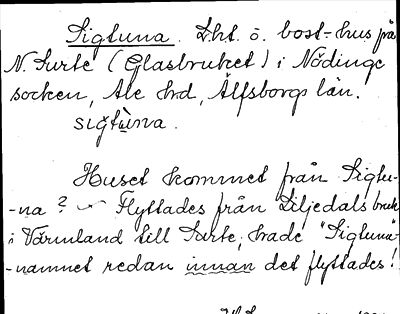 Sigtuna. Lht. ö. bost-hus på
N. Surte (Glasbruket) i Nödinge
socken, Ale hrd, Älfsborgs län.
sigtùna.
Huset kommet från Sigtu-
-na? Flyttades från Liljedals bruk
i Värmland till Surte; hade "Sigtuna"-
-namnet redan innan det flyttades!